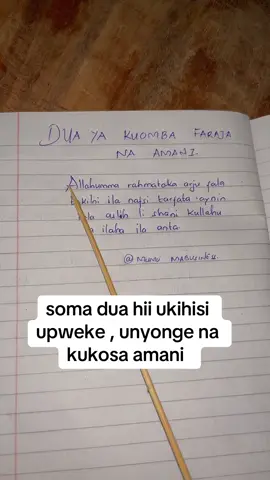 DUA YA KUOMBA FARAJA
NA AMANI.
Allahumma rahmataka arju fala
ila nafsi tarfata aynin
li shani kullahu
ilaha ila anta
soma dua hii ukihisi
upweke , unyonge na
kukosa amani